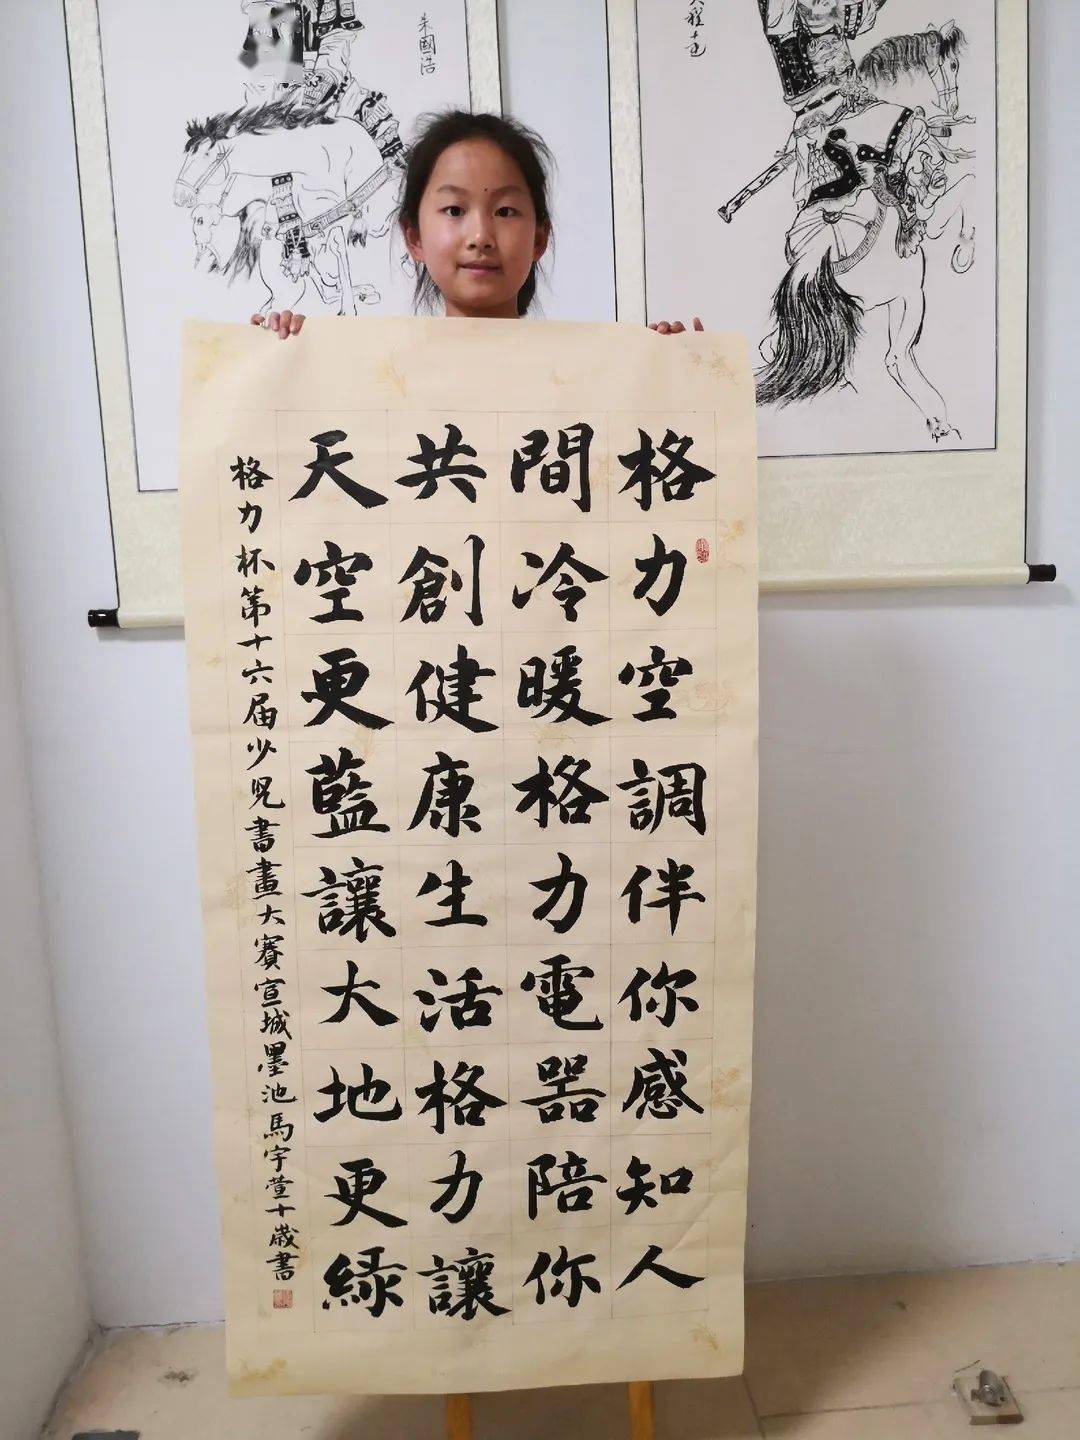 格力空調伴你感知人
間冷暖格力電器陪你
共創健康生活格力讓
天空更藍讓大地更綠
格力杯第十六届少兒書畫大賽宣城墨池馬宇萱十歲書
朱國浩